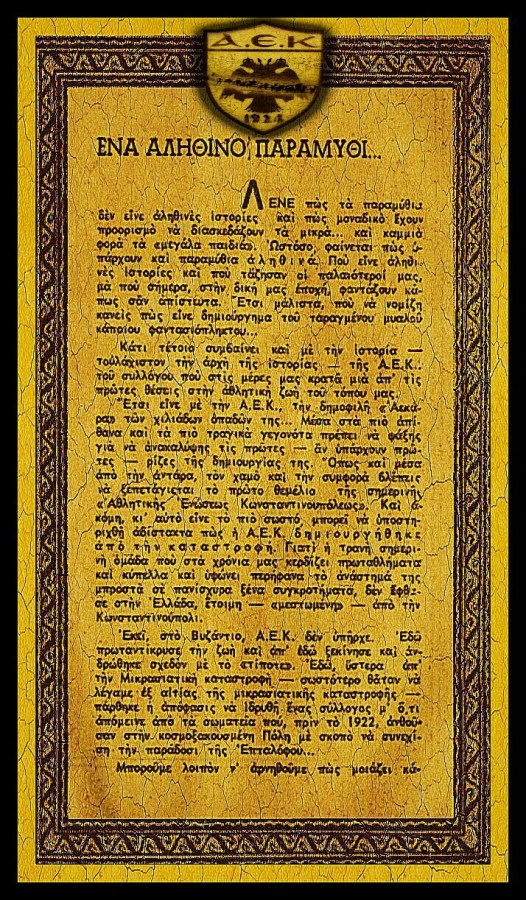 Α.Ε.Κ
1924
ΕΝΑ ΑΛΗΘΙΝΟ ΠΑΡΑΜΥΘΙ...
ΛΕΝΕ πὼς τὰ παραμύθια
δὲν εἶνε ἀληθινὲς ἱστορίες καὶ πὼς μοναδικὸ ἔχουν
προορισμὸ νὰ διασκεδάζουν τὰ μικρὰ... καὶ καμμιὰ
φορὰ τὰ «μεγάλα παιδιά». Ὡστόσο, φαίνεται πὼς ὑ-
πάρχουν καὶ παραμύθια ἀληθινά. Ποὺ εἶνε ἀληθι-
νὲς ἱστορίες καὶ ποὺ τἄζησαν οἱ παλαιότεροί μας,
μὰ ποὺ σήμερα, στὴν δική μας ἐποχή, φαντάζουν κά-
πως σὰν ἀπίστευτα. Ἔτσι μάλιστα, ποὺ νὰ νομίζη
κανεὶς πὼς εἶνε δημιούργημα τοῦ ταραγμένου μυαλοῦ
κάποιου φαντασιόπληκτου...
Κάτι τέτοιο συμβαίνει καὶ μὲ τὴν ἱστορία —
τοὐλάχιστον τὴν ἀρχὴ τῆς ἱστορίας — τῆς Α.Ε.Κ.:
τοῦ συλλόγου ποὺ στὶς μέρες μας κρατᾶ μιὰ ἀπ' τὶς
πρῶτες θέσεις στὴν ἀθλητικὴ ζωὴ τοῦ τόπου μας.
Ἔτσι εἶνε μὲ τὴν Α.Ε.Κ., τὴν δημοφιλῆ «Ἀεκά-
ρα» τῶν χιλιάδων ὀπαδῶν της... Μέσα στὰ πιὸ ἀπί-
θανα καὶ τὰ πιὸ τραγικὰ γεγονότα πρέπει νὰ ψάξης
γιὰ νὰ ἀνακαλύψης τὶς πρῶτες — ἂν ὑπάρχουν πρῶ-
τες — ρίζες τῆς δημιουργίας της. Ὅπως καὶ μέσα
ἀπὸ τὴν ἀντάρα, τὸν χαμὸ καὶ τὴν συμφορὰ βλέπεις
νὰ ξεπετάγεται τὸ πρῶτο θεμέλιο τῆς σημερινῆς
«Ἀθλητικῆς Ἑνώσεως Κωνσταντινουπόλεως». Καὶ ἀ-
κόμη, κι' αὐτὸ εἶνε τὸ πιὸ σωστό, μπορεῖ νὰ ὑποστη-
ριχθῆ ἀδίστακτα πὼς ἡ Α.Ε.Κ. δημιουργήθηκε
ἀπὸ τὴν καταστροφή. Γιατὶ ἡ τρανὴ σημερι-
νὴ ὁμάδα ποὺ στὰ χρόνια μας κερδίζει πρωταθλήματα
καὶ κύπελλα καὶ ὑψώνει περήφανα τὸ ἀνάστημά της
μπροστὰ σὲ πανίσχυρα ξένα συγκροτήματα, δὲν ἔφθα-
σε στὴν Ἑλλάδα, ἕτοιμη — «μεστωμένη» — ἀπὸ τὴν
Κωνσταντινούπολι.
Ἐκεῖ, στὸ Βυζάντιο, Α.Ε.Κ. δὲν ὑπῆρχε. Ἐδῶ
πρωταντίκρυσε τὴν ζωὴ καὶ ἀπ' ἐδῶ ξεκίνησε καὶ ἀν-
δρώθηκε σχεδὸν μὲ τὸ «τίποτε». Ἐδῶ, ὕστερα ἀπ'
τὴν Μικρασιατικὴ καταστροφὴ — σωστότερο θἄταν νὰ
λέγαμε ἐξ αἰτίας τῆς μικρασιατικῆς καταστροφῆς —
πάρθηκε ἡ ἀπόφασις νὰ ἱδρυθῆ ἕνας σύλλογος μ' ὅ,τι
ἀπόμεινε ἀπὸ τὰ σωματεῖα πού, πρὶν τὸ 1922, ἀνθοῦ-
σαν στὴν κοσμοξακουσμένη Πόλη μὲ σκοπὸ νὰ συνεχί-
ση τὴν παράδοσι τῆς Ἑπταλόφου...
Μποροῦμε λοιπὸν ν' ἀρνηθοῦμε πὼς μοιάζει κά-